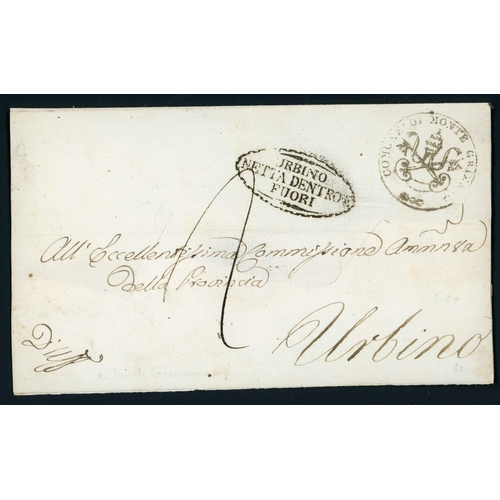 COMUNE DI MONTE GRI
URBINO
NETTA DENTRO E
FUORI
All' Eccellentissima Commissione Annnra
Della Provincia
Urbino
D'Uff